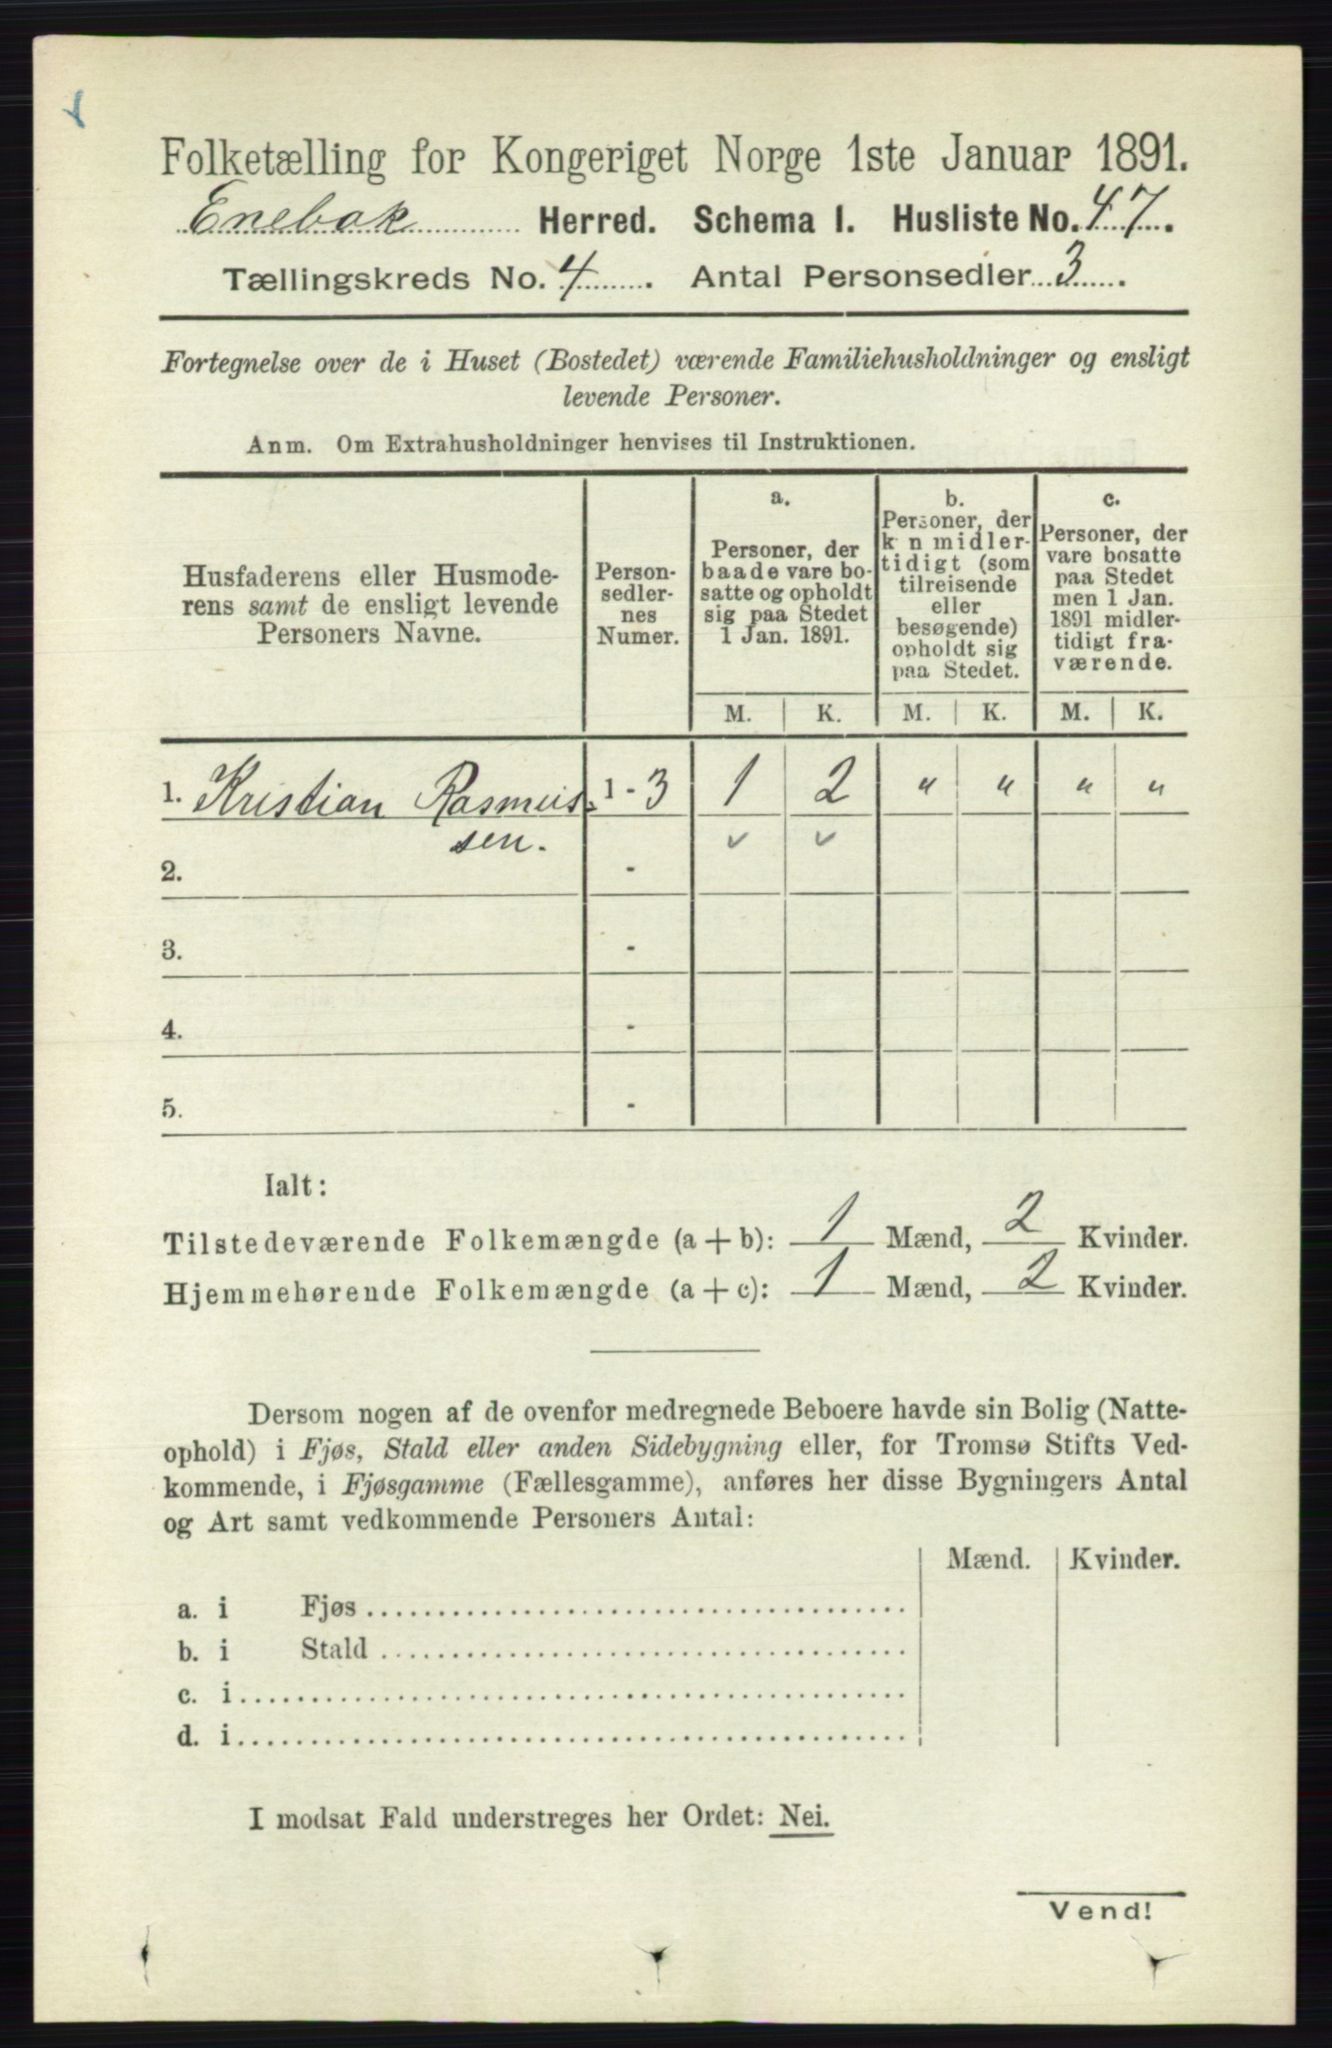 Folketælling for Kongeriget Norge 1ste Januar 1891.
Enebak Herred. Schema I. Husliste No. 47.
Tællingskreds No. 4. Antal Personsedler 3.
Fortegnelse over de i Huset (Bostedet) værende Familiehusholdninger og ensligt
levende Personer.
Anm. Om Extrahusholdninger henvises til Instruktionen.
Husfaderens eller Husmode-
rens samt de ensligt levende
Personers Navne.
Person-
sedler-
nes
Numer.
a.
Personer, der
baade vare bo-
satte og opholdt
sig paa Stedet
1 Jan. 1891.
b.
Personer, der
k n midler-
tidigt (som
tilreisende
eller
besøgende)
opholdt sig
paa Stedet.
c.
Personer, der
vare bosatte
paa Stedet
men 1 Jan.
1891 midler-
tidigt fra-
værende.
M. K. M. K. M. K.
1. Kristian Rasmus- 1 - 3 1 2 " " " "
sen. ✓ ✓
2. -
3. -
4. -
5. -
Ialt:
Tilstedeværende Folkemængde (a + b): 1 Mænd, 2 Kvinder.
Hjemmehørende Folkemængde (a + c): 1 Mænd, 2 Kvinder.
Dersom nogen af de ovenfor medregnede Beboere havde sin Bolig (Natte-
ophold) i Fjøs, Stald eller anden Sidebygning eller, for Tromsø Stifts Ved-
kommende, i Fjøsgamme (Fællesgamme), anføres her disse Bygningers Antal
og Art samt vedkommende Personers Antal:
Mænd. Kvinder.
a. i Fjøs
b. i Stald
c. i
d. i
I modsat Fald understreges her Ordet: Nei.
Vend!